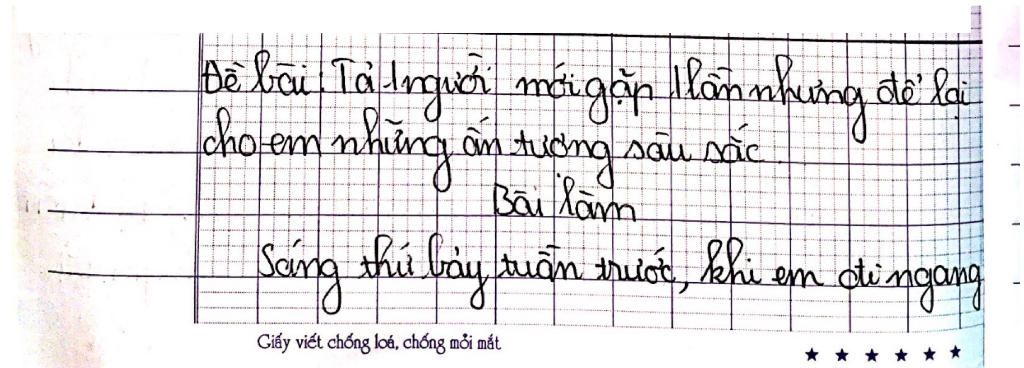 Đề bài: Tả 1 người mới gặp 1 lần nhưng để lại
cho em những ấn tượng sâu sắc.
Bài làm
Sáng thứ bảy tuần trước, khi em đi ngang
Giấy viết chống loá, chống mỏi mắt